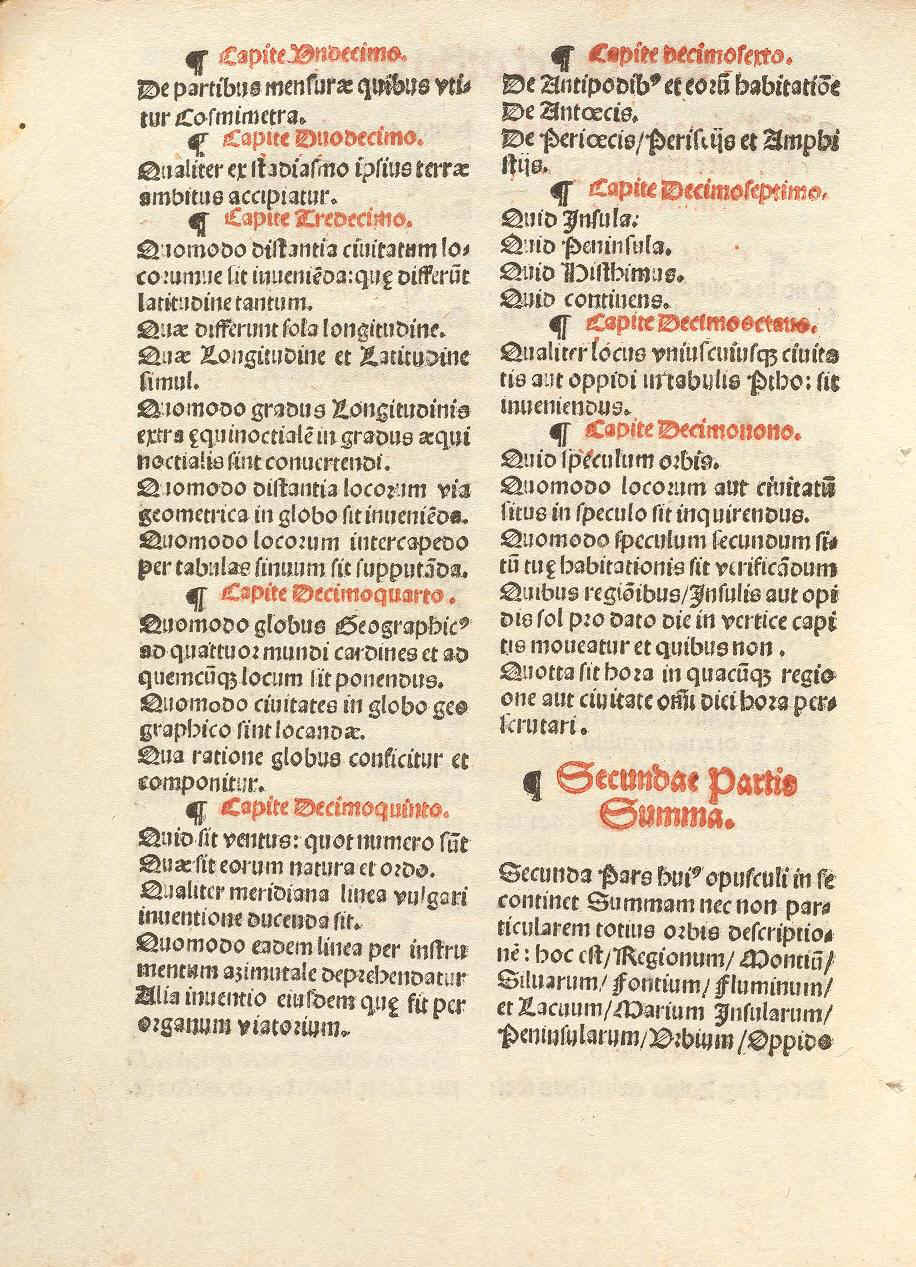 ¶ Capite Vndecimo.
De partibus mensuræ quibus vti⸗
tur Cosmimetra.
¶ Capite Duodecimo.
Qualiter ex stadiasmo ipsius terræ
ambitus accipiatur.
¶ Capite Tredecimo.
Quomodo distantia ciuitatum lo⸗
corumue sit inueniẽda: quę differũt
latitudine tantum.
Quæ differunt sola longitudine.
Quæ Longitudine et Latitudine
simul.
Quomodo gradus Longitudinis
extra ęquinoctialẽ in gradus æqui
noctialis sint conuertendi.
Quomodo distantia locorum via
geometrica in globo sit inueniẽda.
Quomodo locorum intercapedo
per tabulas sinuum sit supputãda.
¶ Capite Decimoquarto.
Quomodo globus Geographicꝰ
ad quattuor mundi cardines et ad
quemcũqꝫ locum sit ponendus.
Quomodo ciuitates in globo geo
graphico sint locandæ.
Qua ratione globus conficitur et
componitur.
¶ Capite Decimoquinto.
Quid sit ventus: quot numero sũt
Quæ sit eorum natura et ordo.
Qualiter meridiana linea vulgari
inuentione ducenda sit.
Quomodo eadem linea per instru
mentum azimutale deprehendatur
Alia inuentio eiusdem quę sit per
organum viatorium.
¶ Capite decimosexto.
De Antipodibꝰ et eorũ habitatiõe
De Antœcis.
De Periœcis/Periscijs et Amphi
scijs.
¶ Capite Decimoseptimo.
Quid Insula:
Quid Peninsula.
Quid Histhimus.
Quid continens.
¶ Capite Decimooctauo.
Qualiter locus vniuscuiusqꝫ ciuita
tis aut oppidi in tabulis Ptho: sit
inueniendus.
¶ Capite Decimonono.
Quid speculum orbis.
Quomodo locorum aut ciuitatũ
situs in speculo sit inquirendus.
Quomodo speculum secundum si⸗
tũ tuę habitationis sit verificãdum
Quibus regiõibus/Insulis aut opi
dis sol pro dato die in vertice capi
tis moueatur et quibus non.
Quotta sit hora in quacũqꝫ regio
one aut ciuitate om̃i diei hora per⸗
scrutari.
¶ Secundae Partis
Summa.
Secunda Pars huiꝰ opusculi in se
continet Summam nec non par⸗
ticularem totius orbis descriptio⸗
nẽ: hoc est/Regionum/Montiũ/
Siluarum/Fontium/Fluminum/
et Lacuum/Marium Insularum/
Peninsularum/Vrbium/Oppido